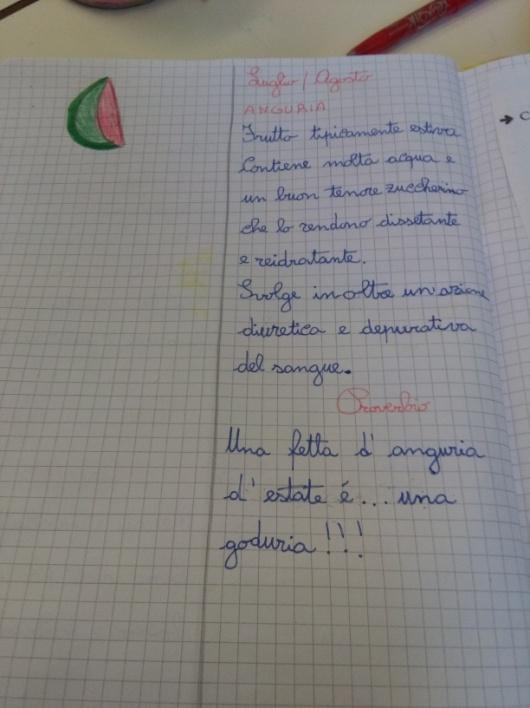 Luglio / Agosto
ANGURIA
Frutto tipicamente estivo
Contiene molta acqua e
un buon tenore zuccherino
che lo rendono dissetante
e reidratante.
Svolge inoltre un'azione
diuretica e depurativa
del sangue.
Proverbio
Una fetta d'anguria
d'estate é... una
goduria!!!